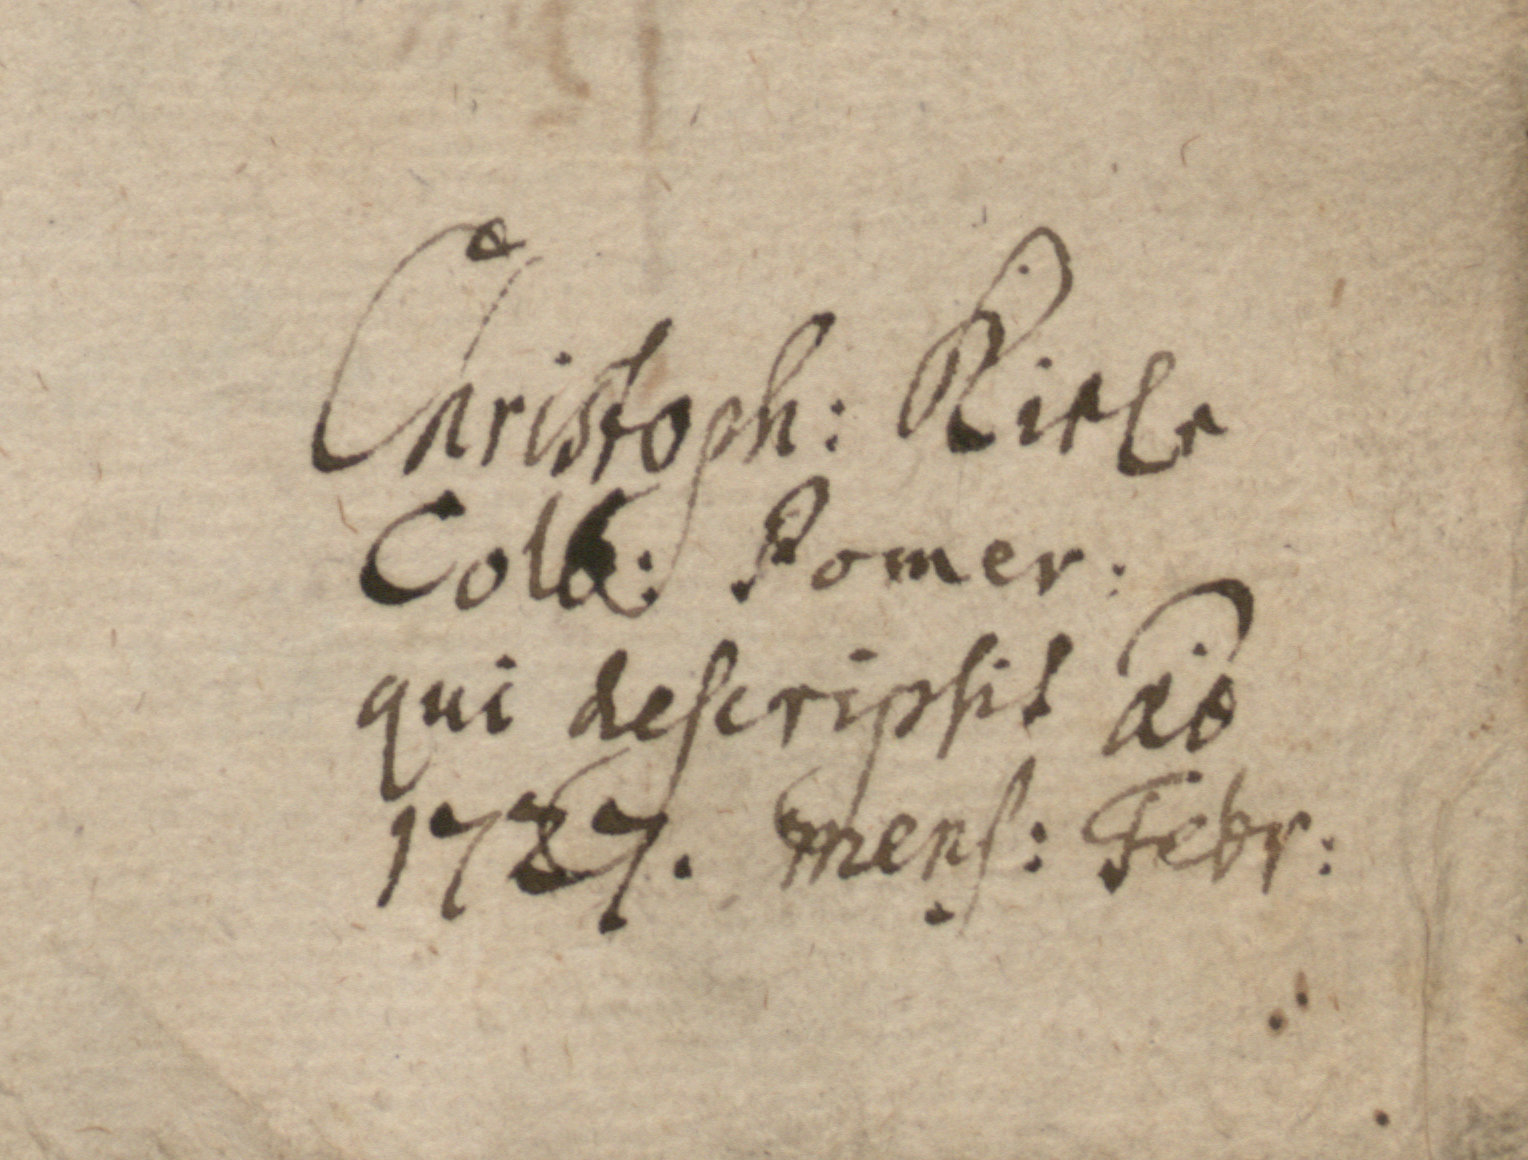 Christoph: Riele
Colb: Pomer:
qui descripsit aõ
1727. mens: Febr: